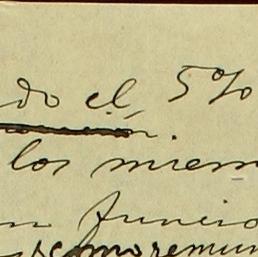 do el 5%
los miem
n funcio
como remun